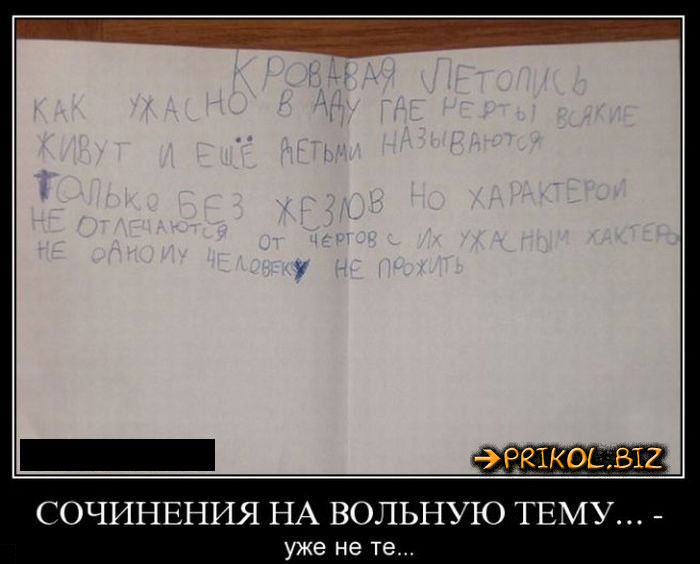 КРОВАВАЯ ЛЕТОПИСЬ
КАК УЖАСНО В АДУ ГДЕ ЧЕРТЫ ВСЯКИЕ
ЖИВУТ И ЕЩЁ ДЕТЬМИ НАЗЫВАЮТСЯ
ТОЛЬКО БЕЗ ЖЕЗЛОВ НО ХАРАКТЕРОМ
НЕ ОТЛЕЧАЮТСЯ ОТ ЧЕРТОВ С ИХ УЖАСНЫМ ХАКТЕРО
НЕ ОДНОМУ ЧЕЛОВЕКУ НЕ ПРОЖИТЬ
PRIKOL.BIZ
СОЧИНЕНИЯ НА ВОЛЬНУЮ ТЕМУ... -
уже не те...